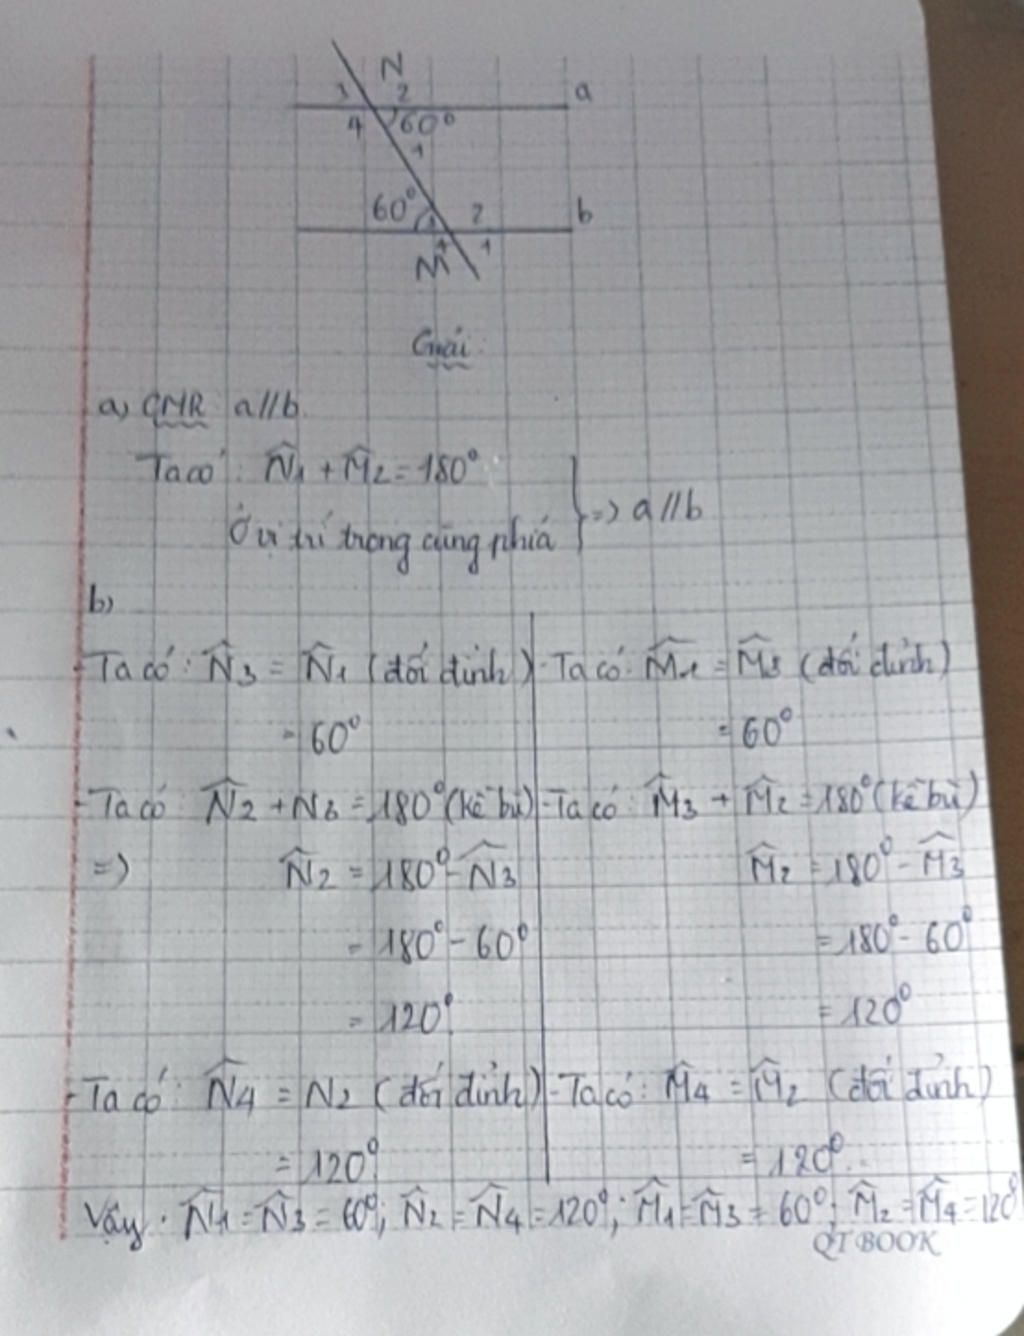 N
3 2 a
4 60°
1
60° 2 b
4 1
M
Giải
a) CMR a//b
Ta có: N̂1 + M̂2 = 180°
Ở vị trí trong cùng phía } => a//b
b)
- Ta có: N̂3 = N̂1 (đối đỉnh)
= 60°
- Ta có: N̂2 + N3 = 180° (kề bù)
=> N̂2 = 180° - N̂3
= 180° - 60°
= 120°
- Ta có: N̂4 = N2 (đối đỉnh)
= 120°
- Ta có: M̂1 = M̂3 (đối đỉnh)
= 60°
- Ta có: M̂3 + M̂2 = 180° (kề bù)
M̂2 = 180° - M̂3
= 180° - 60°
= 120°
- Ta có: M̂4 = M̂2 (đối đỉnh)
= 120°
Vậy: N̂1 = N̂3 = 60°; N̂2 = N̂4 = 120°; M̂1 = M̂3 = 60°; M̂2 = M̂4 = 120°
QT BOOK